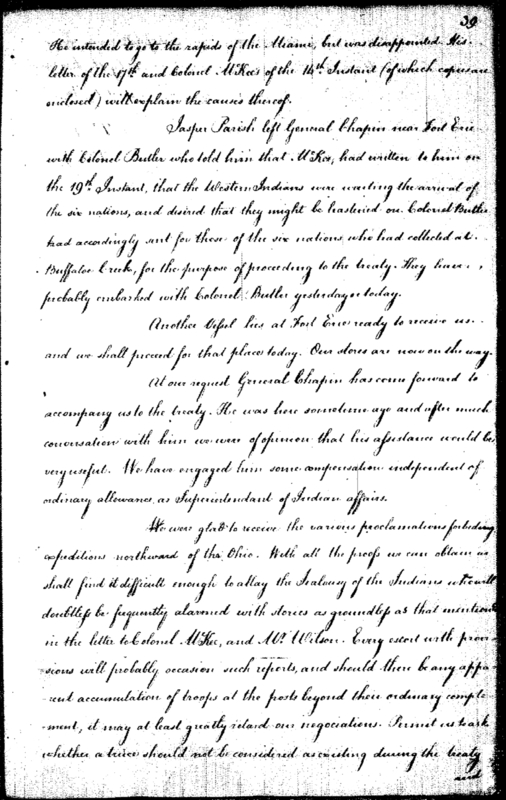 39
He intended to go to the rapids of the Miami, but was disappointed. His
letter of the 17th and Colonel McKee's of the 14th Instant (of which copies are
enclosed) will explain the causes thereof.
Jasper Parish left General Chapin near Fort Erie
with Colonel Butler who told him that McKee, had written to him on
the 19th Instant, that the Western Indians were waiting the arrival of
the six nations, and desired that they might be hastened on. Colonel Butler
had accordingly sent for those of the six nations, who had collected at
Buffaloe Creek, for the purpose of proceeding to the treaty. They have
probably embarked with Colonel Butler yesterday or today.
Another Vessel lies at Fort Erie ready to receive us
and we shall proceed for that place today. Our stores are now on the way.
At our request General Chapin has come forward to
accompany us to the treaty. He was here sometime ago and after much
conversation with him we were of opinion that his assistance would be
very useful. We have engaged him some compensation independent of
ordinary allowance, as Superintendant of Indian affairs.
We were glad to receive the various proclamations forbiding
expeditions northward of the Ohio. With all the proofs we can obtain we
shall find it difficult enough to allay the Jealousy of the Indians who will
doubtless be frequently alarmed with stories as groundless as that mentioned
in the letter to Colonel McKee, and Mr. Wilson. Every escort with provi-
sions will probably occasion such reports, and should there be any appa
rent accumulation of troops at the posts beyond their ordinary comple
ment, it may at least greatly retard our negociations. Permit us to ask
whether a truce should not be considered as existing during the treaty
and